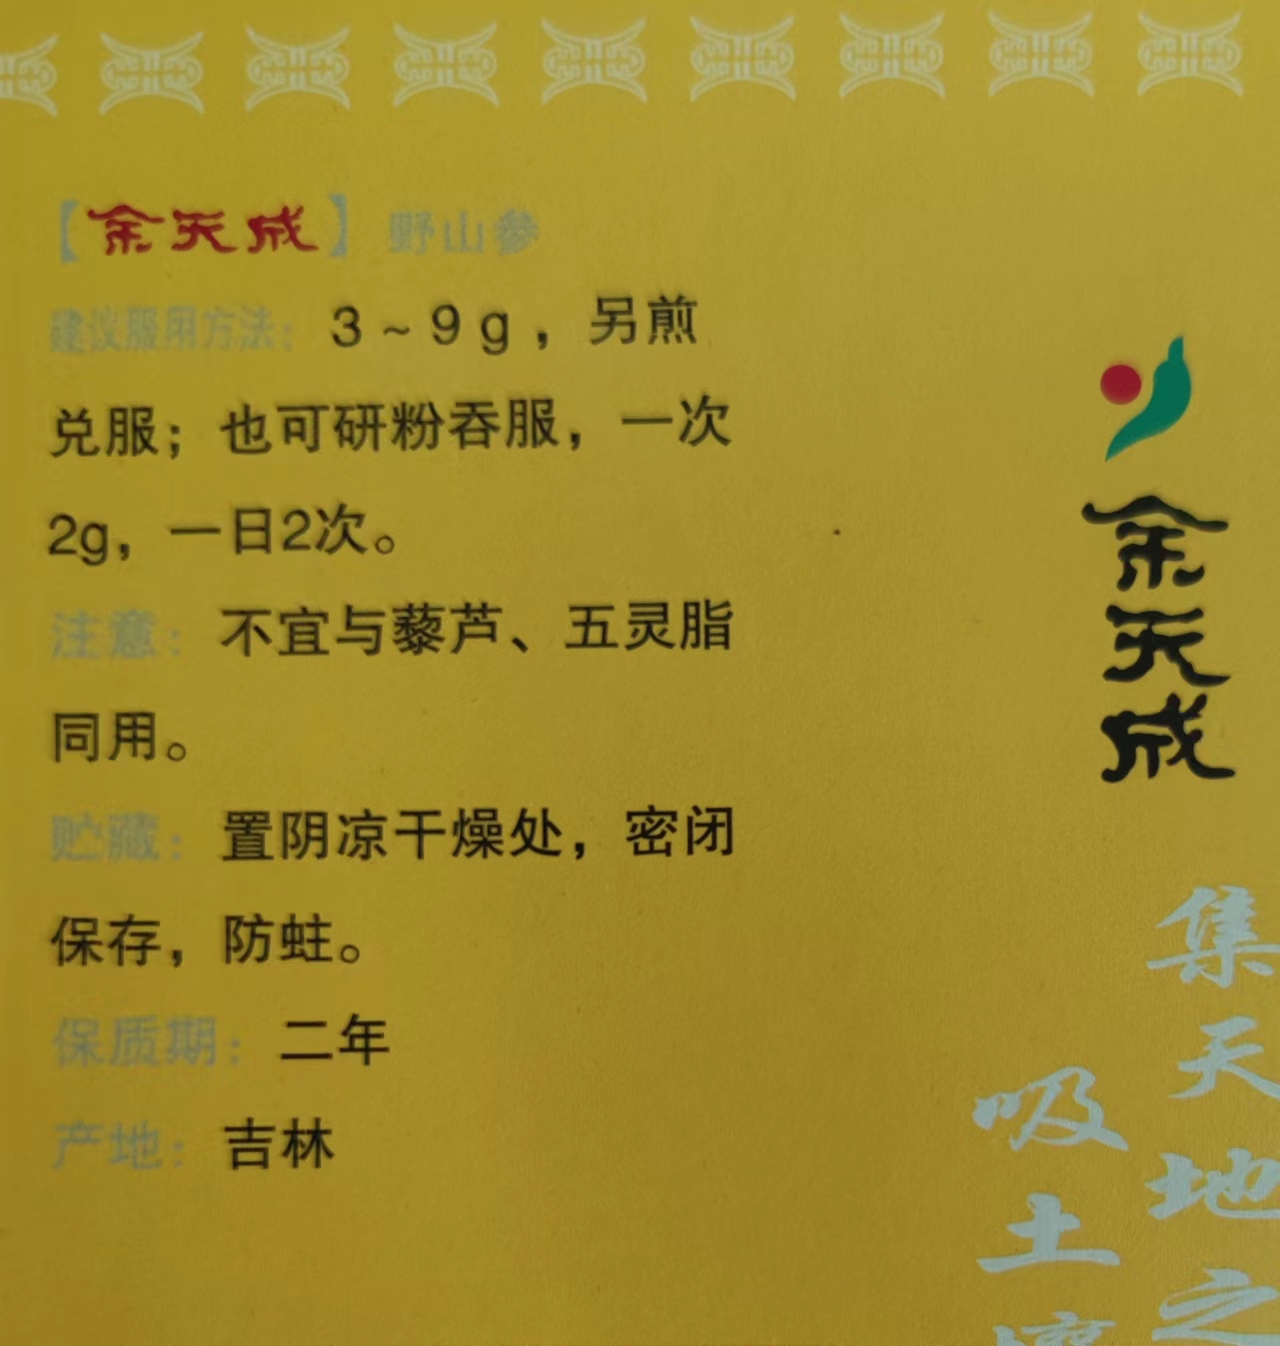 【余天成】野山参
建议服用方法：3~9g，另煎
兑服；也可研粉吞服，一次
2g，一日2次。
注意：不宜与藜芦、五灵脂
同用。
贮藏：置阴凉干燥处，密闭
保存，防蛀。
保质期：二年
产地：吉林
余天成
集天地之
吸土壤